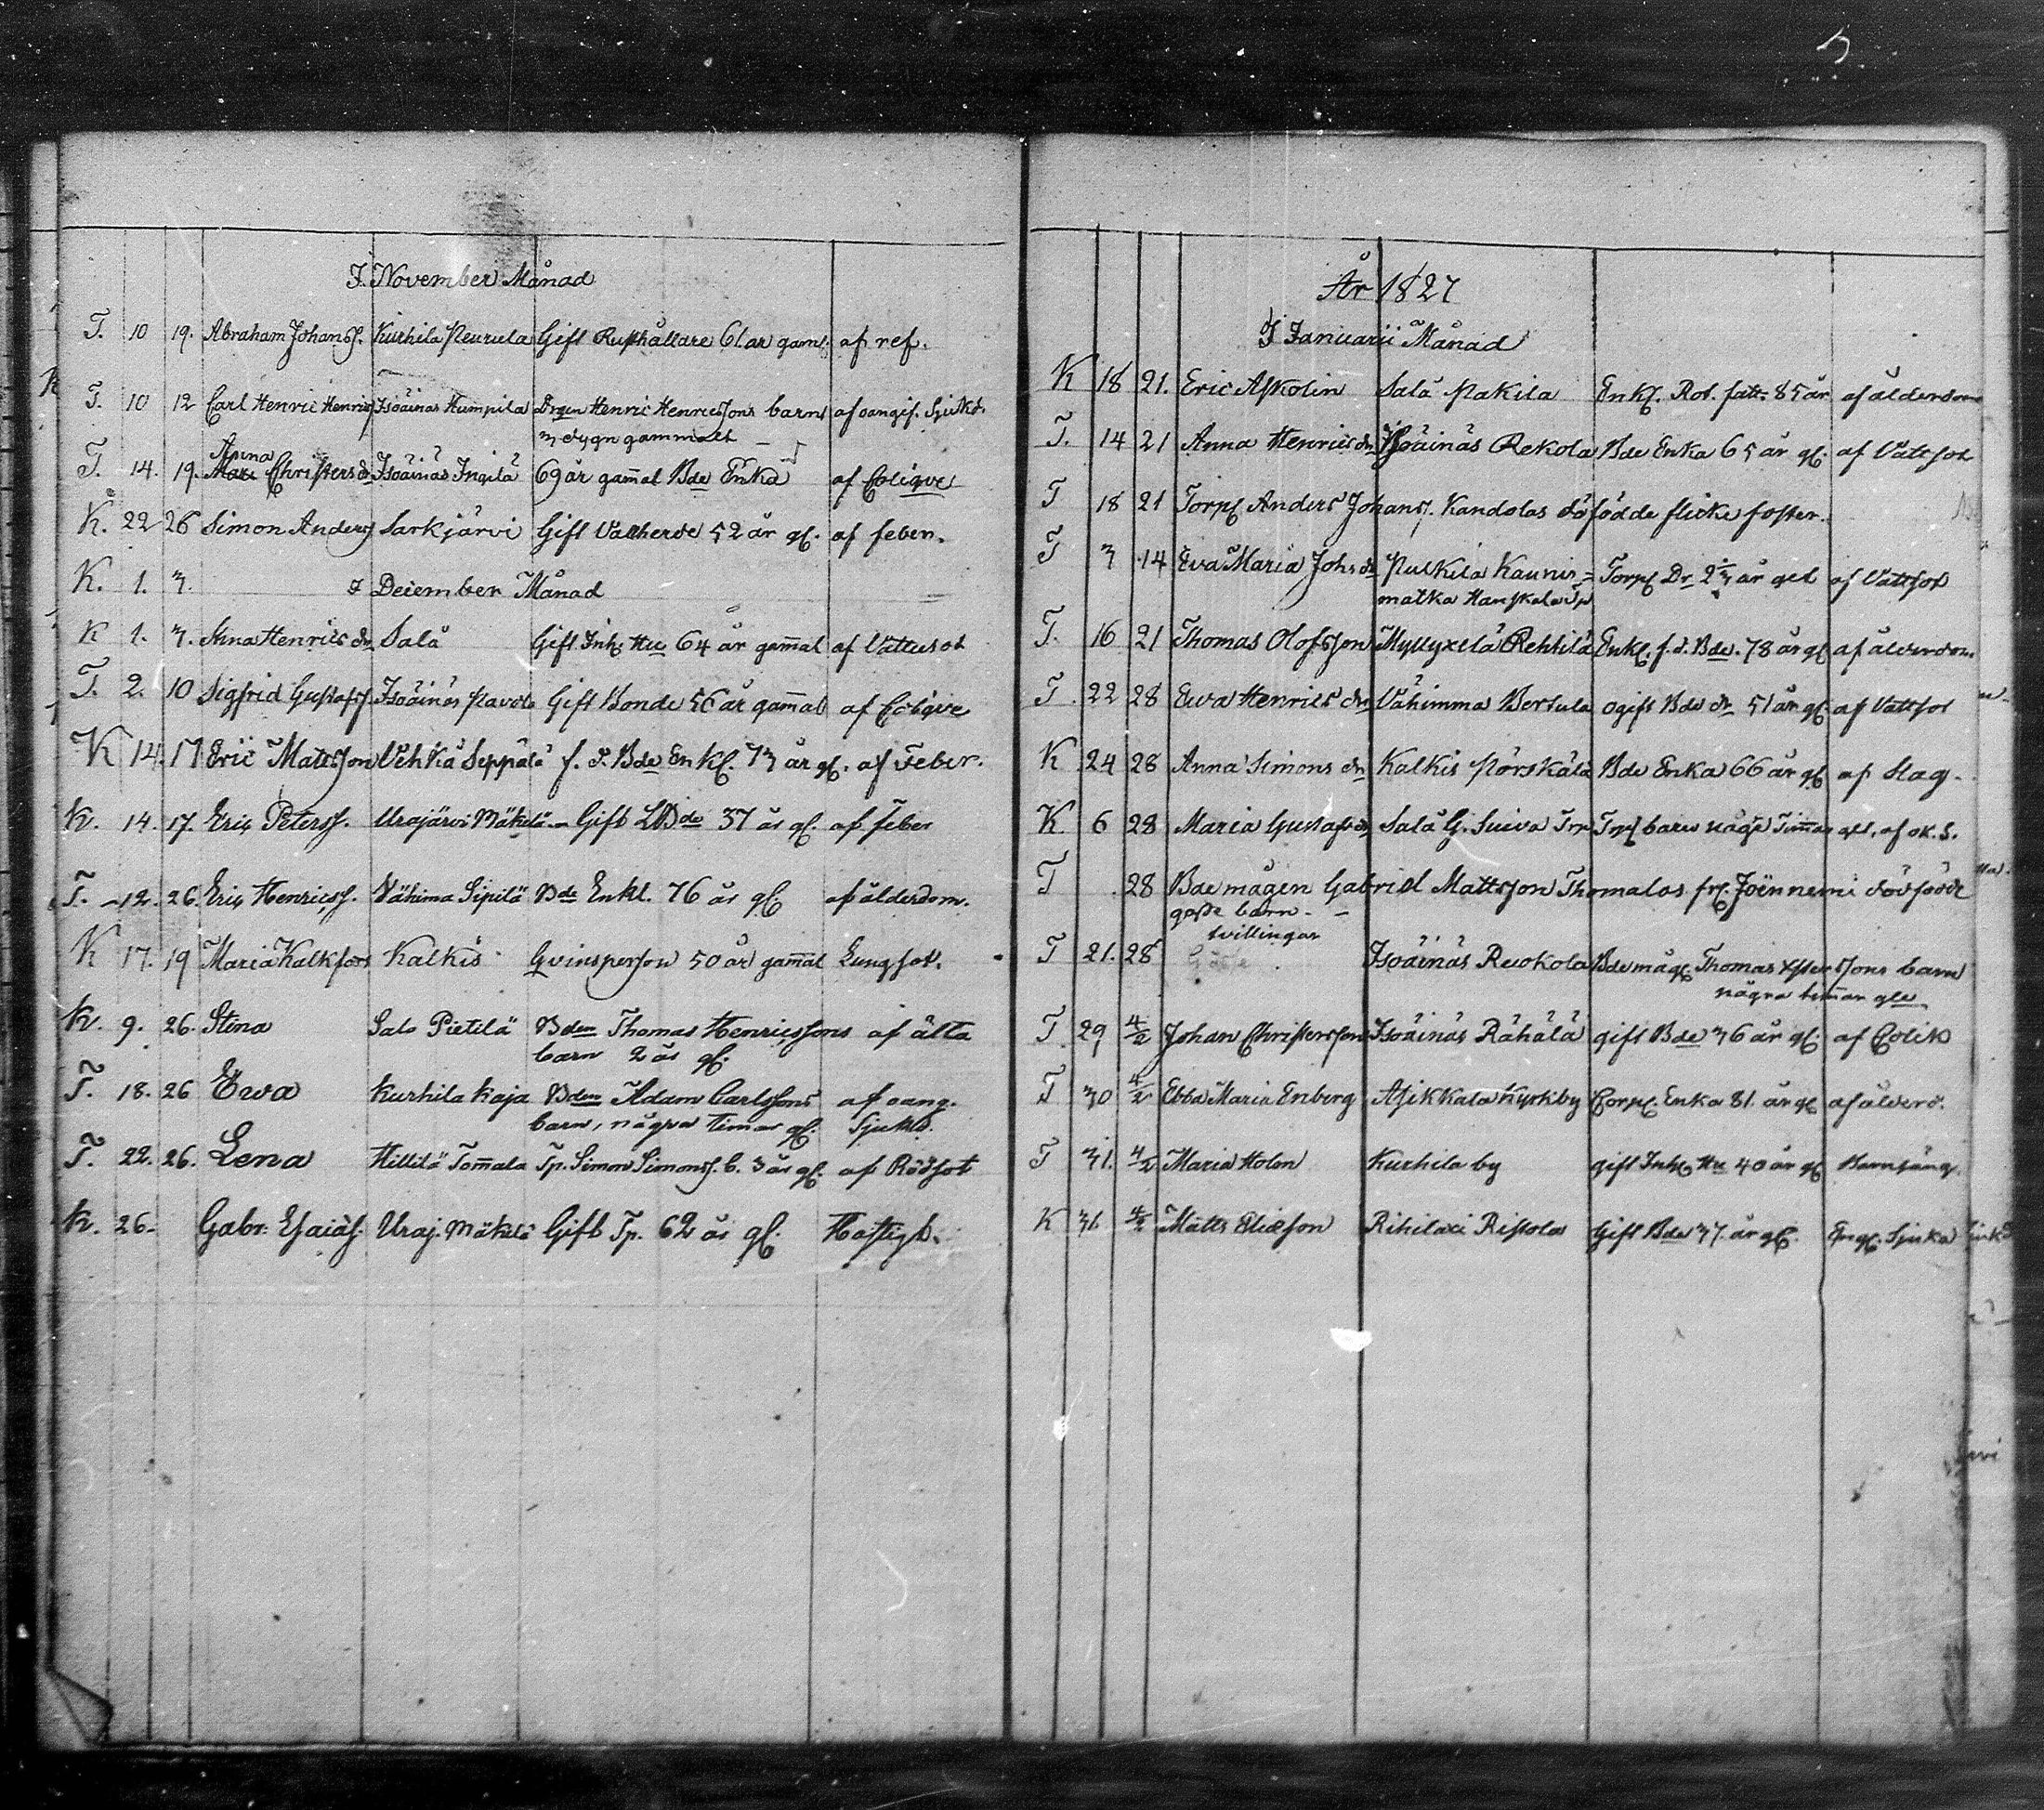 I November Månad
T. 10 19. Abraham Johanss. Kurhila Peurula Gift Rusthållare 61 år gaml. af ref.
T. 10 12 Carl Henric Henrics Isöäinäs Humpila Drgen Henric Henricssons barn af oangif. Sjukd.
3 dygn gammalt
Anna
T. 14. 19. Christersdr Isöäinäs Ingilä 69 år gam̄al Bde Enka af Colique
K. 22 26 Simon Anderss Särkjärvi Gift Vallherde 52 år gl. af feber.
K. 1. 3. I December Månad
K 1. 3. Stina Henricsdr Salå Gift Inh. Hu 64 år gam̄al af Vattusot
T. 2. 10 Sigfrid Gustafss Isöäinäs Pavola Gift Bonde 56 år gam̄al af Colique
K 14. 17 Eric Mattsson Vehkå Seppälä f. d. Bde Enkl. 73 år gl. af Feber.
K. 14. 17. Eric Peterss. Urajärvi Mäkelä Gift LBde 37 år gl. af feber
T. 12. 26. Eric Henricss. Vähima Sipilä Bde Enkl. 76 år gl. af ålderdom.
K 17. 19 Maria Kalkfors Kalkis Qvinsperson 50 år gam̄al Lungsot.
K. 9. 26. Stina Salo Pietilä Bden Thomas Henricssons af ålta
barn 2 år gl.
T. 18. 26 Ewa Kurhila Kaja Bden Adam Carlssons af oang.
barn, några timar gl. Sjukd.
T. 22. 26. Lena Hillilä Tom̄ala Tp. Simon Simonss. b. 3 år gl. af Rödsot
K. 26. Gabr. Esaiass. Uraj. Mäkelä Gift Tp. 62 år gl. Hastigt.
År 1827
I Januarii Månad
K 18 21. Eric Askolin Salå Pakila Enkl. Rot. fatt. 85 år af ålderdom
T. 14 21 Anna Henricsdr Isöäinäs Rekola Bde Enka 65 år gl. af Vattsot
T 18 21 Torp. Anders Johanss. Kandolas dödfödde flicke foster.
T 3 14 Eva Maria Johsdr Pulkila Kaunis= Torp. Dr 2 1/3 år gl. af Vattsot
matka Hanskala Tp
T. 16 21 Thomas Olofsson Myllykelä Rehtilä Enkl. f. d. Bde. 78 år gl af ålderdom.
T. 22 28 Ewa Henricsdr Vähimma Bertula ogift Bde dr 51 år gl. af Vattsot
K 24 28 Anna Simonsdr Kalkis Pörskälä Bde Enka 66 år gl af Slag.
K 6 28 Maria Gustafsdr Salå G. Suiva Trp Trpl barn några Tim̄ar gl., af ok. s.
T 28 Bde mågen Gabriel Mattsson Thomalas fr. Joënnemi dödfödde
gosse barn.
tvillingar
T 21. 28 Isöäinäs Ruokola Bde måg. Thomas Xsterssons barn
några tim̄ar gle
T. 29 4/2 Johan Christersson Isöäinäs Rähälä gift Bde 36 år gl. af Colik
T 30 4/2 Ebba Maria Enberg Asikkala Kyrkby Corpl. Enka 81. år gl af ålderd.
T 31. 4/2 Maria Holm Kurhila by gift Inh. Hu 40 år gl Barnsäng.
K 31 4/2 Matts Eliasson Rihilaxi Ristola Gift Bde 37. år gl. Engl. Sjuka